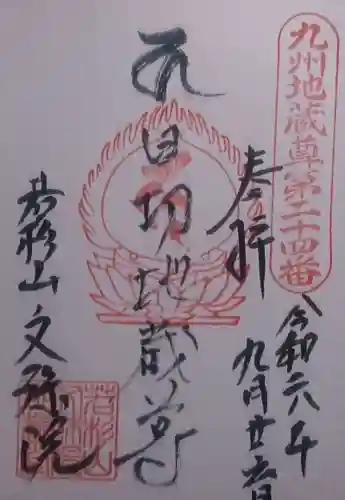 九州地蔵尊第二十四番
奉拝
令和六年
九月廿 日
日切地蔵尊
若杉山文殊院
若杉山